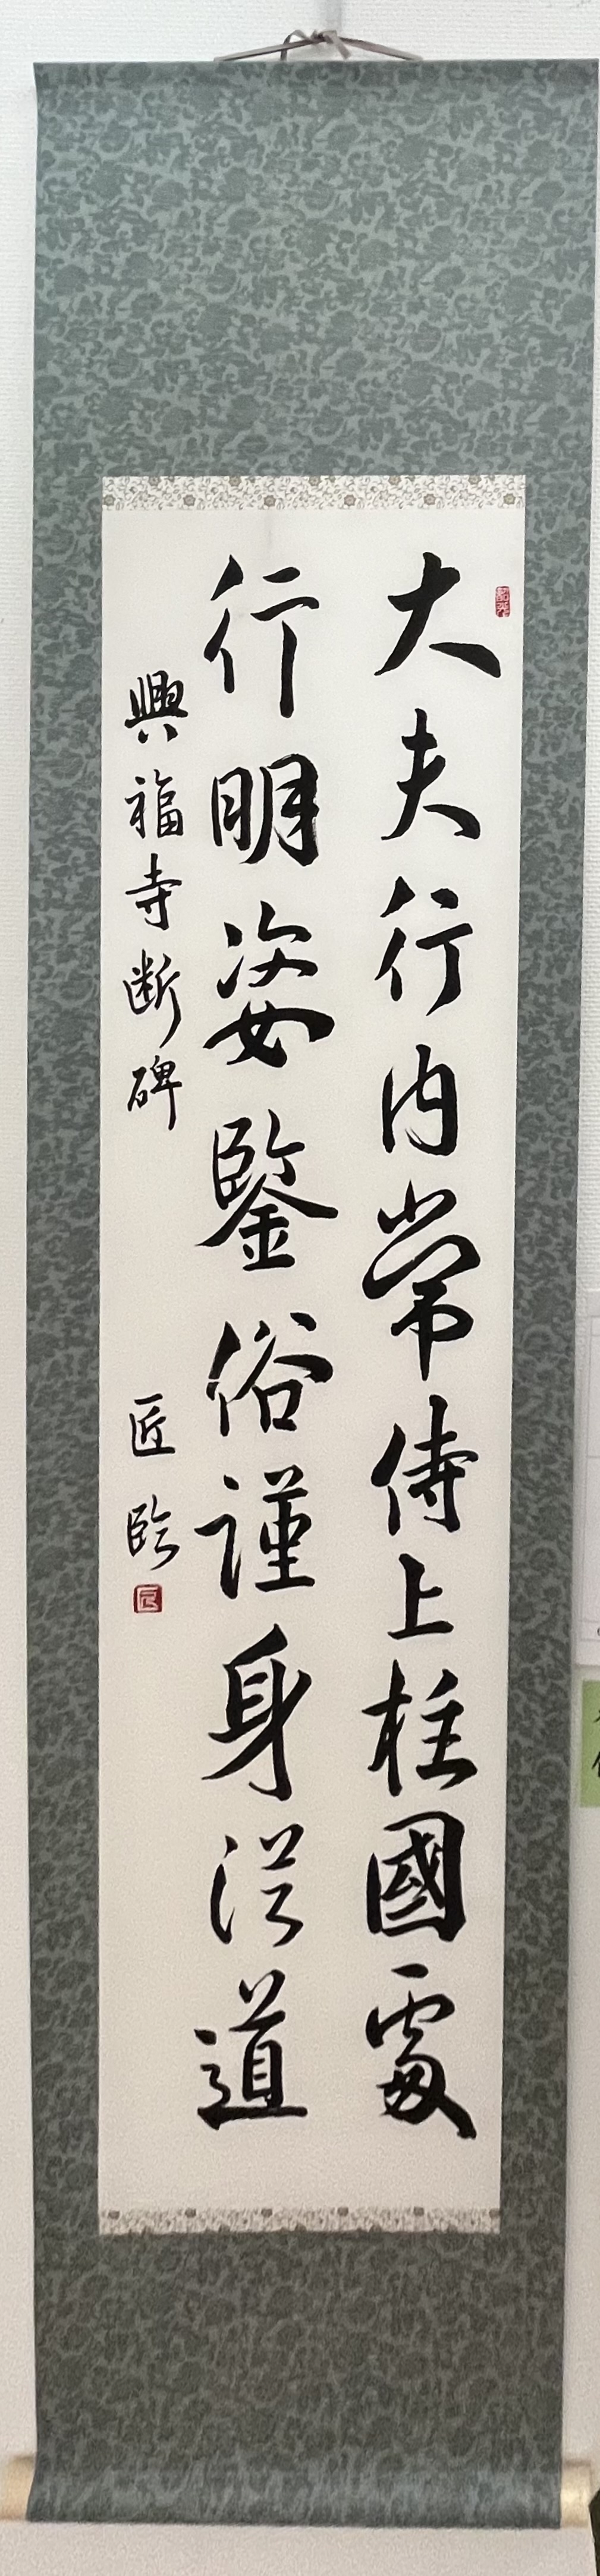 大夫行内常侍上柱國處
行明姿鑒俗謹身從道
興福寺断碑
匠臨